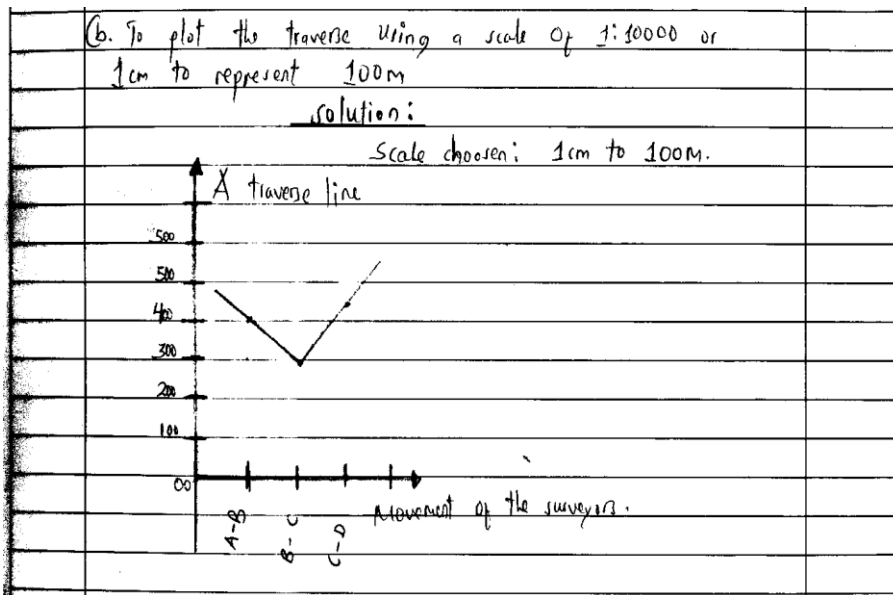 (b. To plot the traverse using a scale of 1:10000 or
1cm to represent 100m
solution:
Scale choosen: 1cm to 100m.
A traverse line
500
500
400
300
200
100
00
A-B
B-C
C-D
Movement of the surveyors.